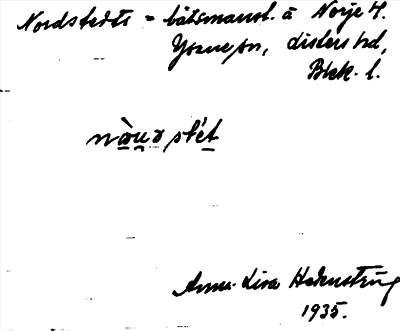 Nordstedts = båtsmanst. å Norje 4.
Ysane sn, Listers hd,
Blek. l.
nòu̯ꝛ stét
Anna-Lisa
1935.